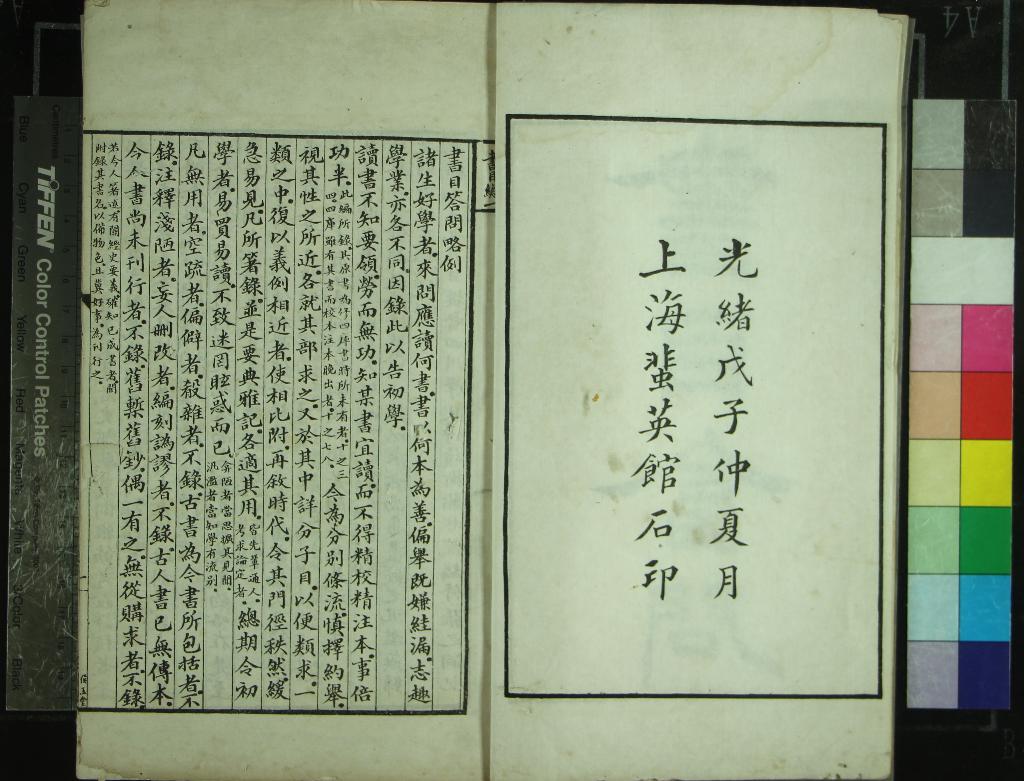 光緒戊子仲夏月
上海蜚英館石印
書目答問略例
諸生好學者來問應讀何書書以何本為善偏舉既嫌絓漏志趣
學業亦各不同因錄此以告初學
讀書不知要領勞而無功知某書宜讀而不得精校精注本事倍
功半此編所錄其原書為修四庫書時所未有者十之三四四庫雖有其書而校本注本晚出者十之七八今為分別條流慎擇約舉
視其性之所近各就其部求之又於其中詳分子目以便類求一
類之中復以義例相近者使相比附再敘時代令其門徑秩然緩
急易見凡所箸錄並是要典雅記各適其用皆先輩通人考求論定者總期令初
學者易買易讀不致迷罔眩惑而已弇陋者當思擴其見聞汎濫者當知學有流別
凡無用者空疏者偏僻者殽雜者不錄古書為今書所包括者不
錄注釋淺陋者妄人刪改者編刻譌謬者不錄古人書已無傳本
今人書尚未刊行者不錄舊槧舊鈔偶一有之無從購求者不錄
若今人箸述有關經史要義確知已成書者間附錄其書名以備物色且冀好事為刊行之
Centimetres
TIFFEN Color Control Patches
Blue
Cyan
Green
Yellow
Red
Magenta
White
3/Color
Black
A4
B